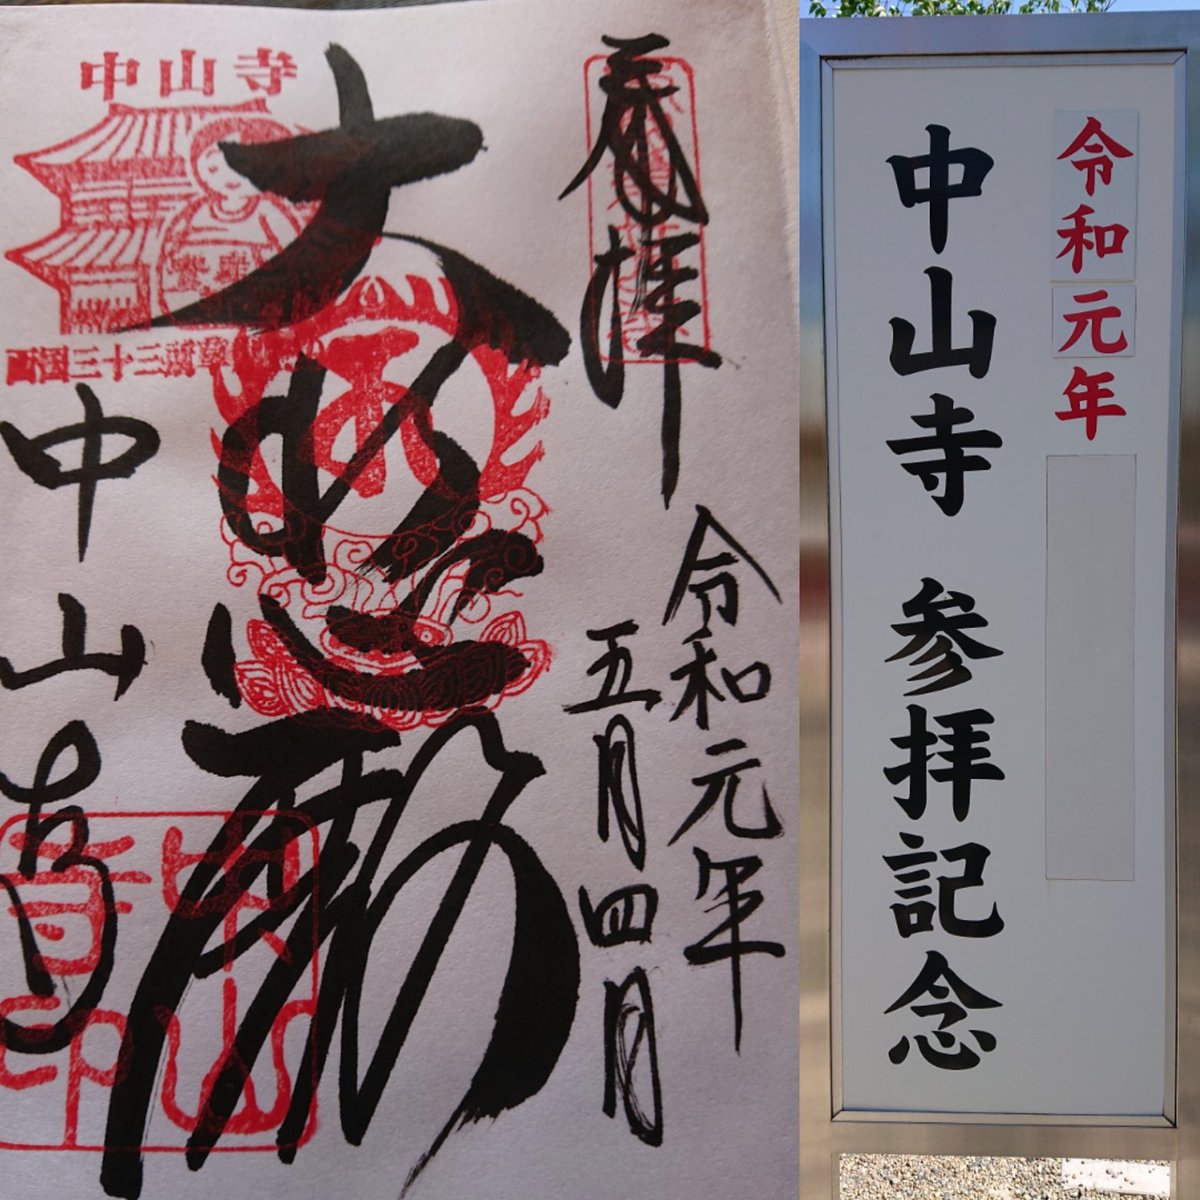 奉拝
令和元年
五月四日
大悲殿
中山寺
中山寺
西國三十三
中山寺印
令和元年
中山寺 参拝記念